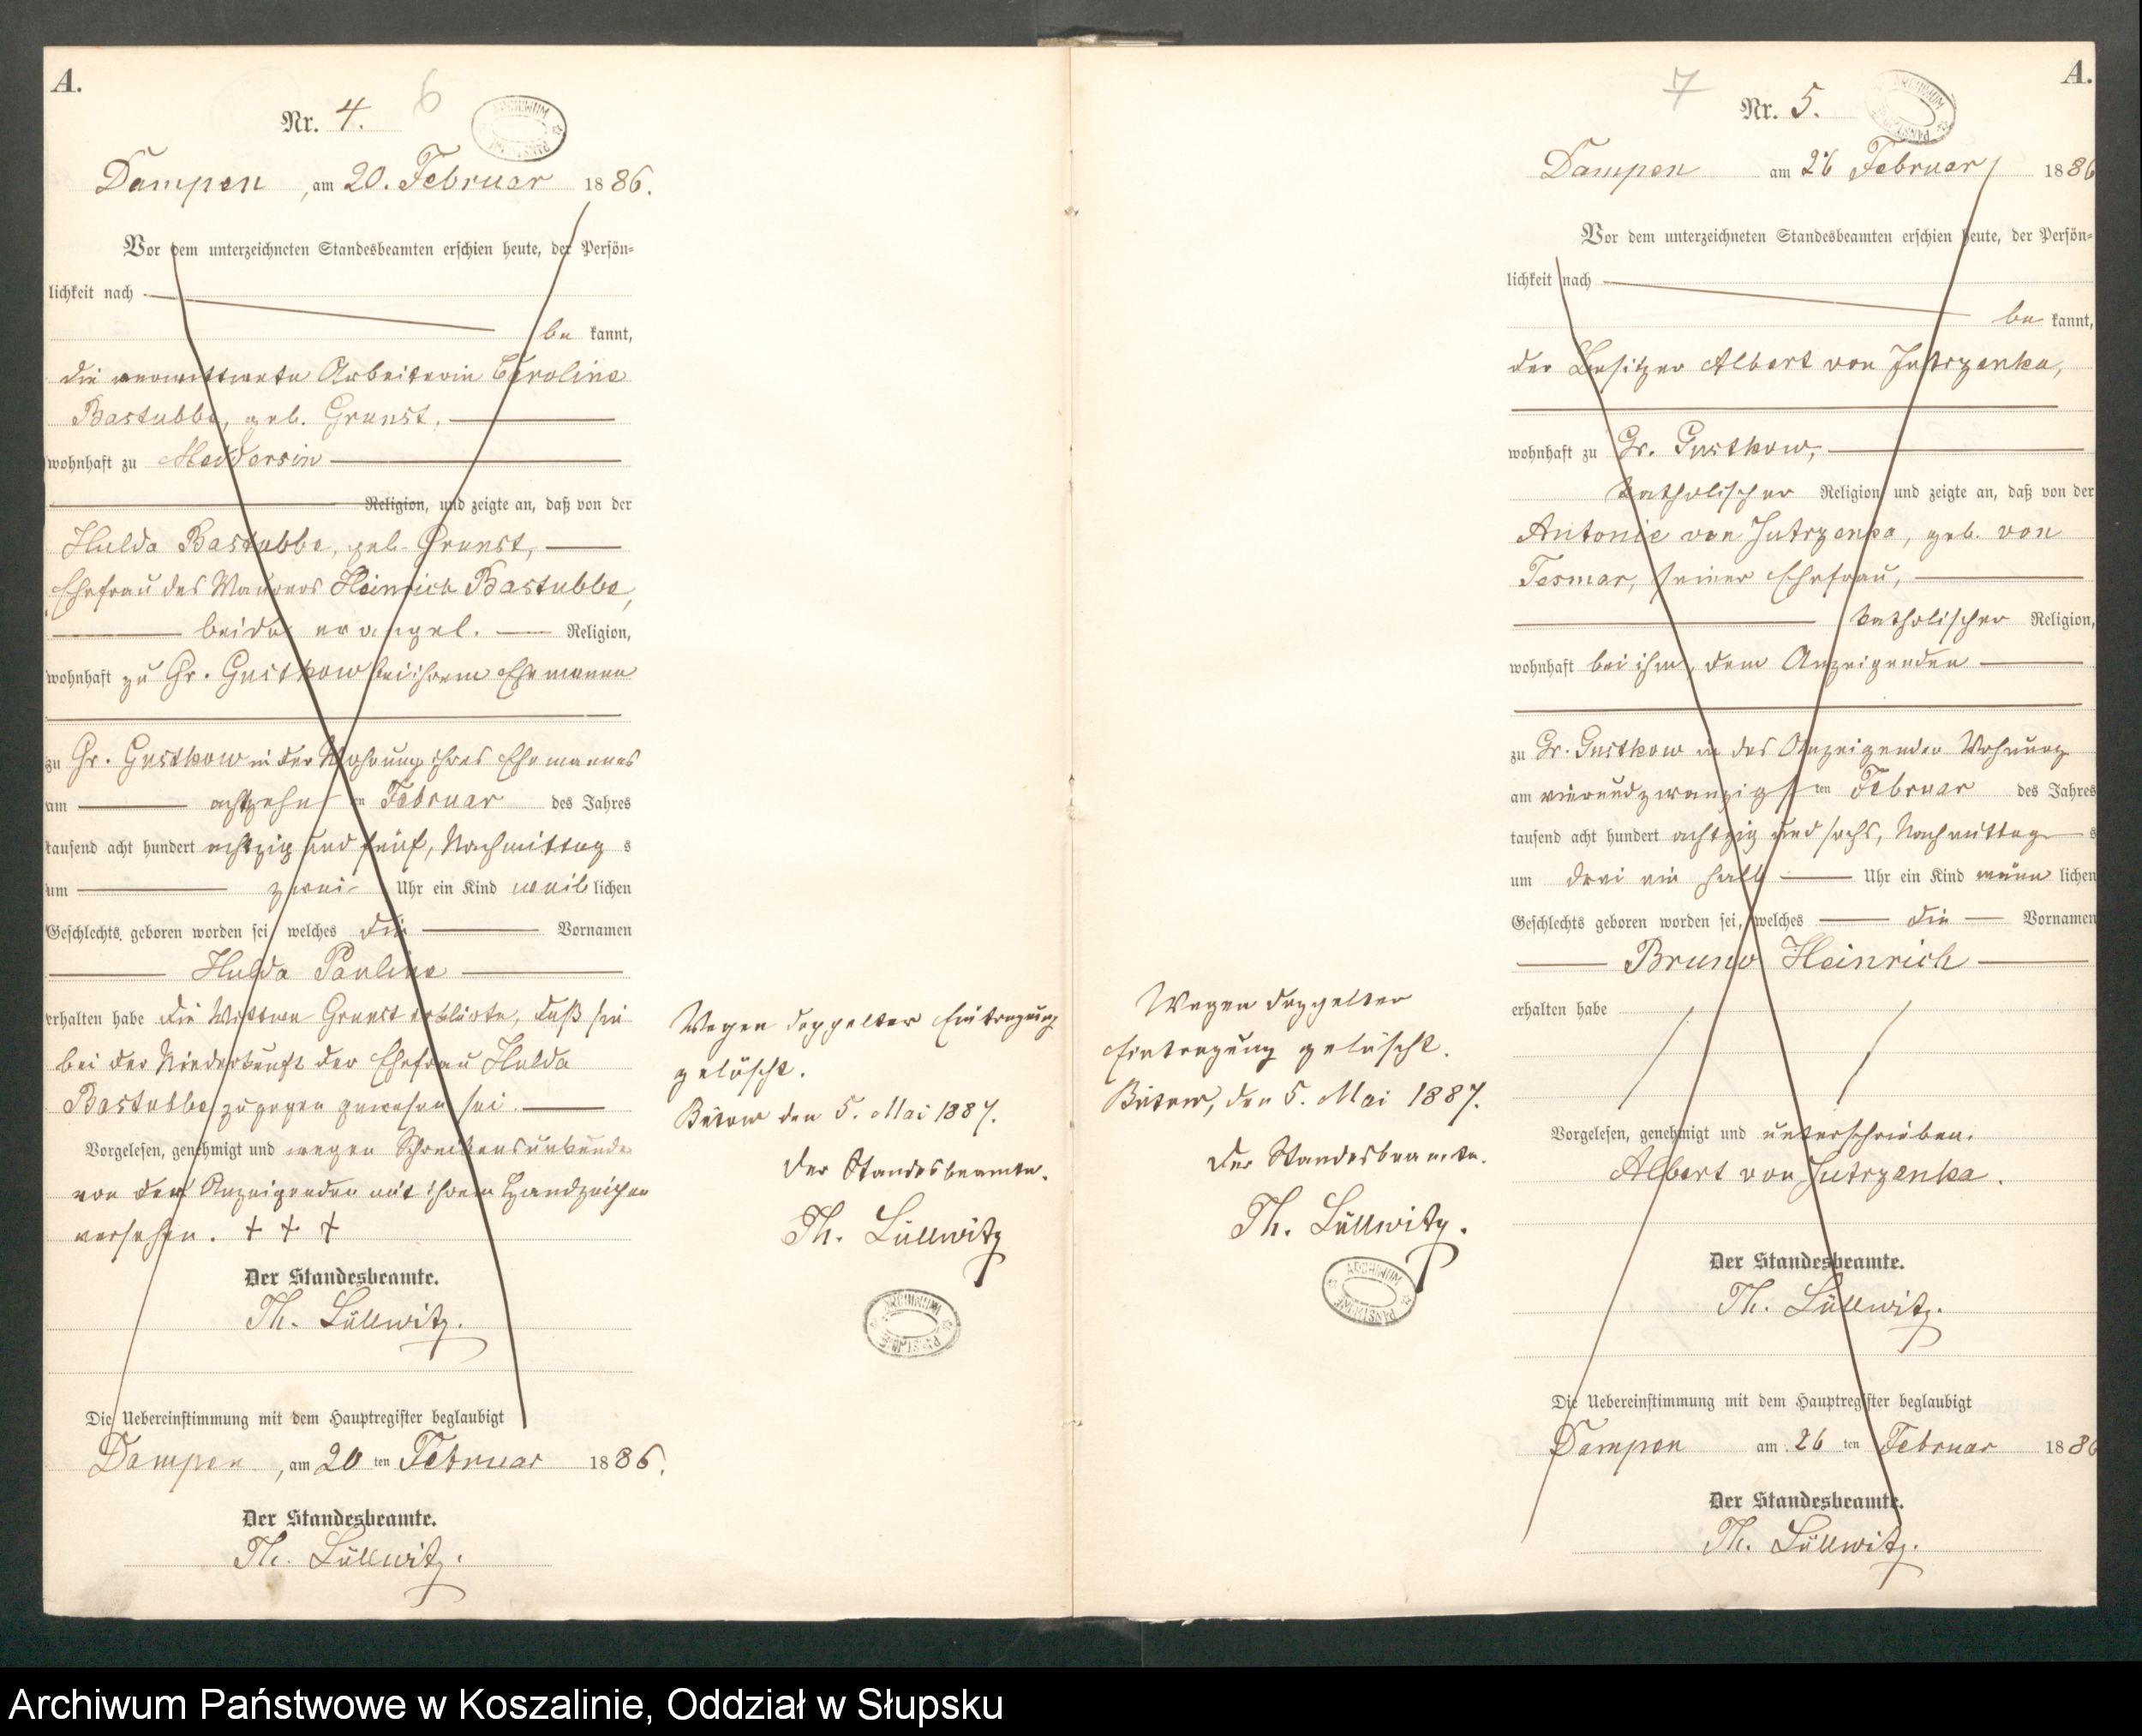 A.
Nr. 4.
6
ARCHIWUM PAŃSTWOWE
Dampen, am 20. Februar 1886.
Vor dem unterzeichneten Standesbeamten erschien heute, der Persön-
lichkeit nach
be kannt,
die verwittwete Arbeiterin Caroline
Bastubbe, geb. Grunst,
wohnhaft zu Meddersin
Religion, und zeigte an, daß von der
Hulda Bastubbe, geb. Grunst,
Ehefrau des Maurers Heinrich Bastubbe,
beide evangel. Religion,
wohnhaft zu Gr. Gustkow bei ihrem Ehemanne
zu Gr. Gustkow in der Wohnung ihres Ehemannes
am achtzehn ten Februar des Jahres
tausend acht hundert achtzig und fünf, Nachmittag s
um zwei Uhr ein Kind weib lichen
Geschlechts geboren worden sei, welches die Vornamen
Hulda Pauline
erhalten habe die Wittwe Grunst erklärte, daß sie
bei der Niederkunft der Ehefrau Hulda
Bastubbe zugegen gewesen sei.
Vorgelesen, genehmigt und wegen Schreibensunkunde
von der Anzeigenden mit ihrem Handzeichen
versehen. + + +
Der Standesbeamte.
Th. Lüllwitz.
Die Uebereinstimmung mit dem Hauptregister beglaubigt
Dampen, am 20 ten Februar 1886.
Der Standesbeamte.
Th. Lüllwitz.
Wegen doppelter Eintragung
gelöscht.
Bütow den 5. Mai 1887.
Der Standesbeamte.
Th. Lüllwitz
ARCHIWUM PAŃSTWOWE
Wegen doppelter
Eintragung gelöscht.
Bütow, den 5. Mai 1887.
Der Standesbeamte.
Th. Lüllwitz.
ARCHIWUM PAŃSTWOWE
A.
7
Nr. 5.
ARCHIWUM PAŃSTWOWE
Dampen am 26 Februar 1886
Vor dem unterzeichneten Standesbeamten erschien heute, der Persön-
lichkeit nach
be kannt,
der Besitzer Albert von Jutrzenka,
wohnhaft zu Gr. Gustkow,
katholischer Religion und zeigte an, daß von der
Antonie von Jutrzenka, geb. von
Tesmar, seiner Ehefrau,
katholischer Religion,
wohnhaft bei ihm, dem Anzeigenden
zu Gr. Gustkow in des Anzeigenden Wohnung
am vierundzwanzigs ten Februar des Jahres
tausend acht hundert achtzig und sechs, Nachmittag s
um drei ein halb Uhr ein Kind männ lichen
Geschlechts geboren worden sei, welches die Vornamen
Bruno Heinrich
erhalten habe
Vorgelesen, genehmigt und unterschrieben.
Albert von Jutrzenka.
Der Standesbeamte.
Th. Lüllwitz.
Die Uebereinstimmung mit dem Hauptregister beglaubigt
Dampen am 26 ten Februar 1886
Der Standesbeamte.
Th. Lüllwitz.
Archiwum Państwowe w Koszalinie, Oddział w Słupsku